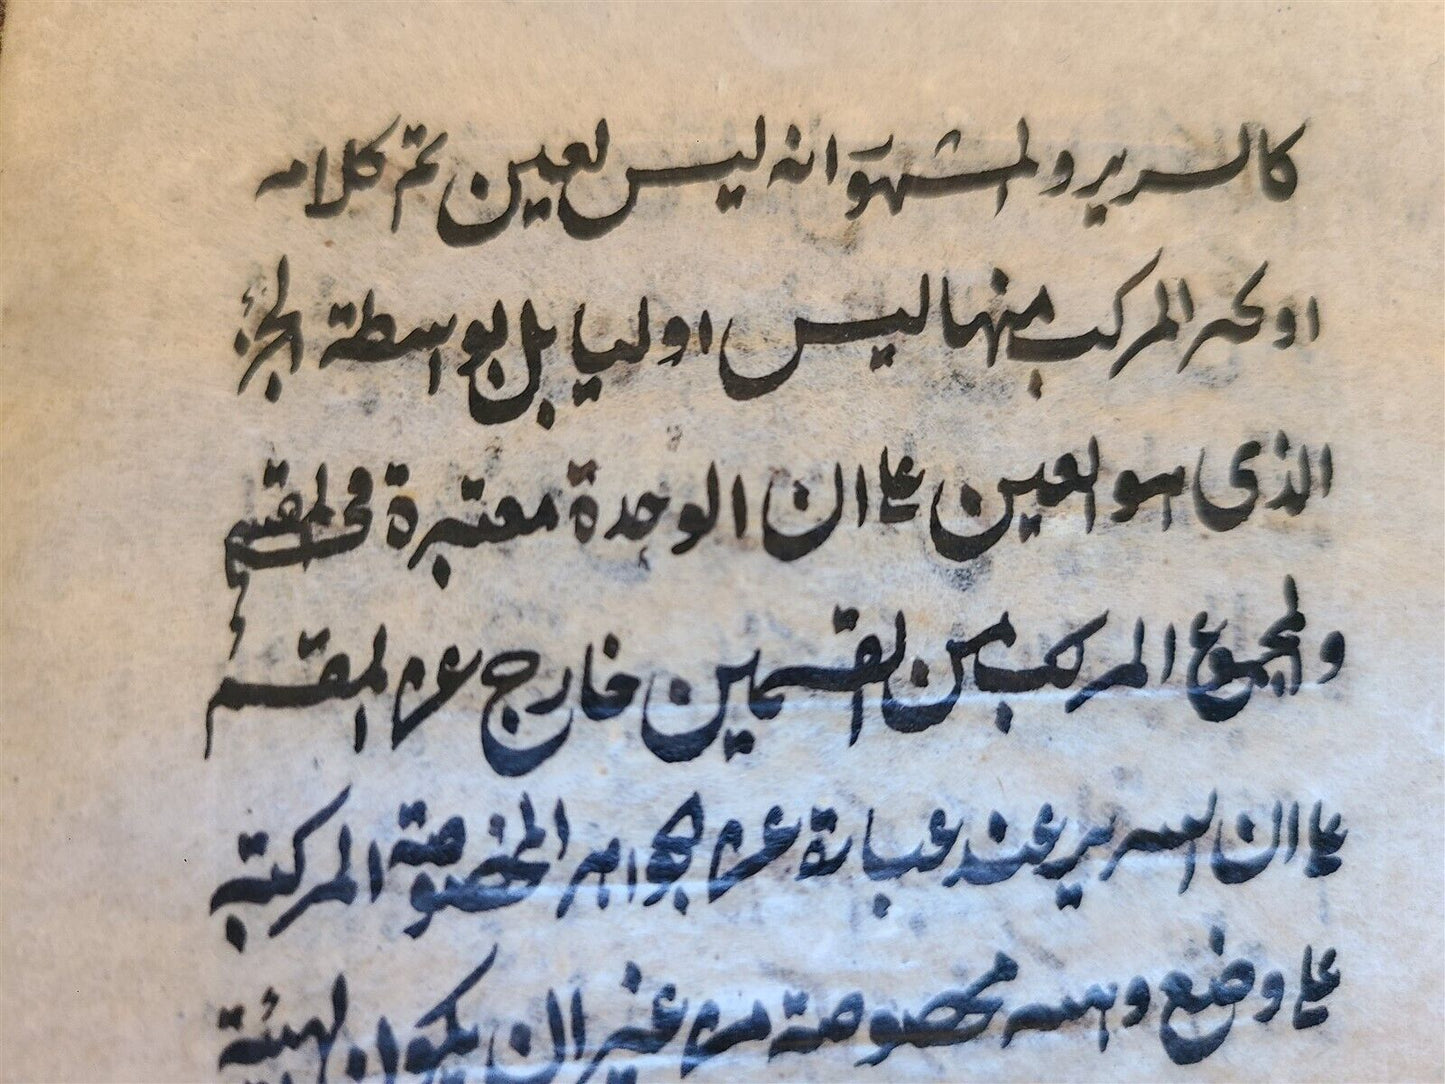 كالسرير والمشهور انه ليس بعين تم كلامه
او نحن المركب منها ليس اوليا بل بواسطة الجزء
الذى هو العين على ان الوحدة معتبرة فى المقسم
والمجموع المركب من القسمين خارج عن المقسم
على ان السرير عند عبارة عن الجواهر المخصوصة المركبة
على وضع وهيئة مخصوصة من غير ان يكون لهيئة